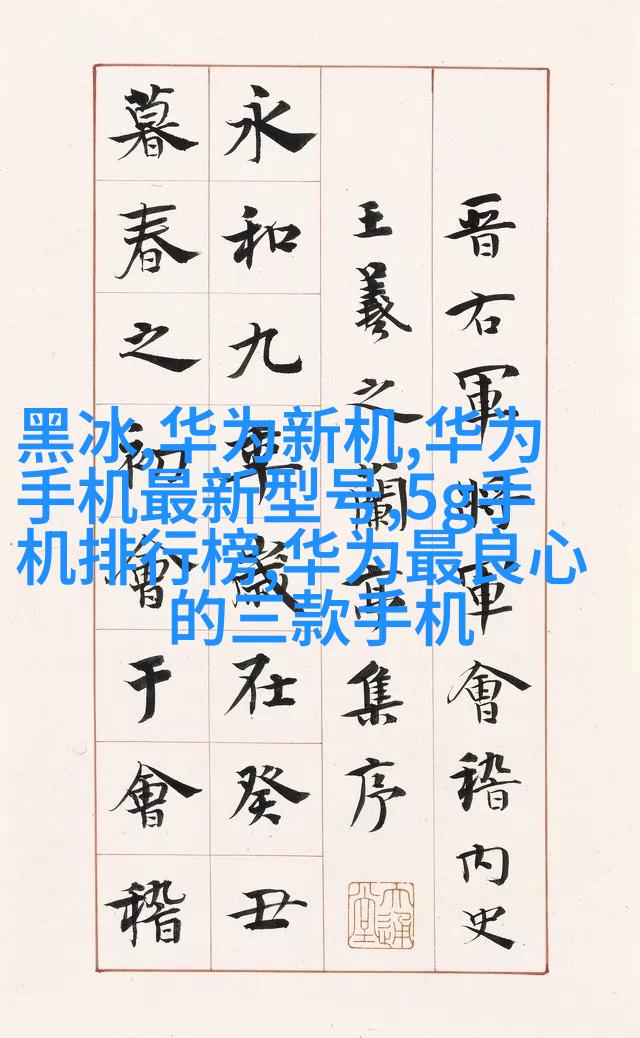 晋右軍將軍會稽内史
王羲之蘭亭集序
永和九年歲在癸丑
暮春之初會于會稽
黑冰,华为新机,华为
手机最新型号,5g手
机排行榜,华为最良心
的三款手机